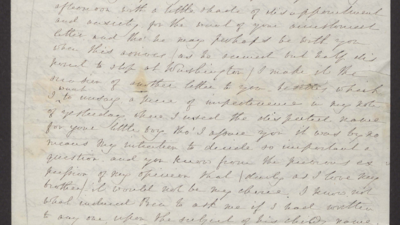 afternoon with a little shade of disappointment
and anxiety for the want of your accustomed
letter and tho' he may perhaps be with you
when this arrives (as he seemed but half dis
posed to stop at Washington) I made it the
number of another letter to you besides which
I want to undo a piece of impertinence in my note
of yesterday when I used the disputed name
for your little boy tho' I assure you it was by no
means my intention to decide so important a
question and you know from the previous ex
pression of my opinion that dearly as I love my
brother, it would not be my choice. I know not
what induced Ben to ask me if I had written
to any one upon the subject of his name